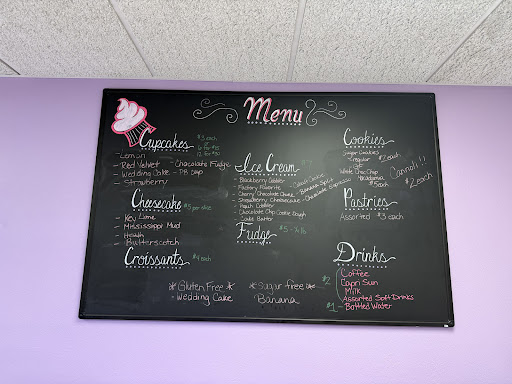 Menu
Cupcakes $3 each
- Lemon
- Red Velvet - Chocolate Fudge
- Wedding Cake - PB Cup
- Strawberry
Cheesecake $5 per slice
- Key Lime
- Mississippi Mud
- Heath
- Butterscotch
Croissants $4 each
*Gluten Free*
- Wedding Cake
Ice Cream
- Blackberry Cobbler
- Factory Favorite
- Cherry Chocolate Chunk - Banana Split
- Strawberry Cheesecake - Chocolate
- Peach Cobbler
- Chocolate Chip Cookie Dough
Fudge $5 - ½ lb
*Sugar free
Banana
Cookies
Sugar Cookies
Irregular
$2 each
White Choc Chip
Macadamia
$5 each
Cannoli!!
$2 each
Pastries
Assorted $3 each
Drinks
$2
Coffee
Capri Sun
Milk
Assorted Soft Drinks
$1 - Bottled Water